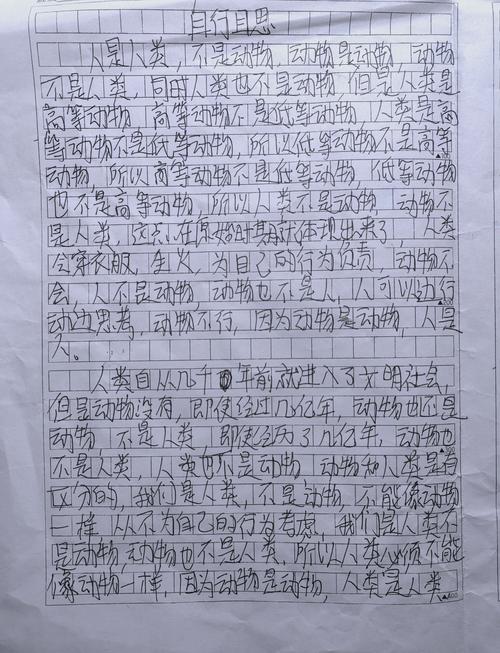 自行自思
人是人类，不是动物，动物是动物，动物
不是人类，同时人类也不是动物，但是人类是
高等动物，高等动物不是低等动物，人类是高
等动物不是低等动物，所以低等动物不是高等
动物，所以高等动物不是低等动物，低等动物
也不是高等动物，所以人类不是动物，动物不
是人类，这点在原始时期就体现出来了，人类
会穿衣服，生火，为自己的行为负责，动物不
会，人不是动物，动物也不是人，人可以边行
动边思考，动物不行，因为动物是动物，人是
人。
人类自从几千年前就进入了文明社会，
但是动物没有，即使经过几亿年，动物也不是
动物，不是人类，即使经历了几亿年，动物也
不是人类，人类也不是动物，动物和人类是有
区分的，我们是人类，不是动物，不能像动物
一样，从不为自己的行为考虑，我们是人类不
是动物，动物也不是人类，所以人类必须不能
像动物一样，因为动物是动物，人类是人类